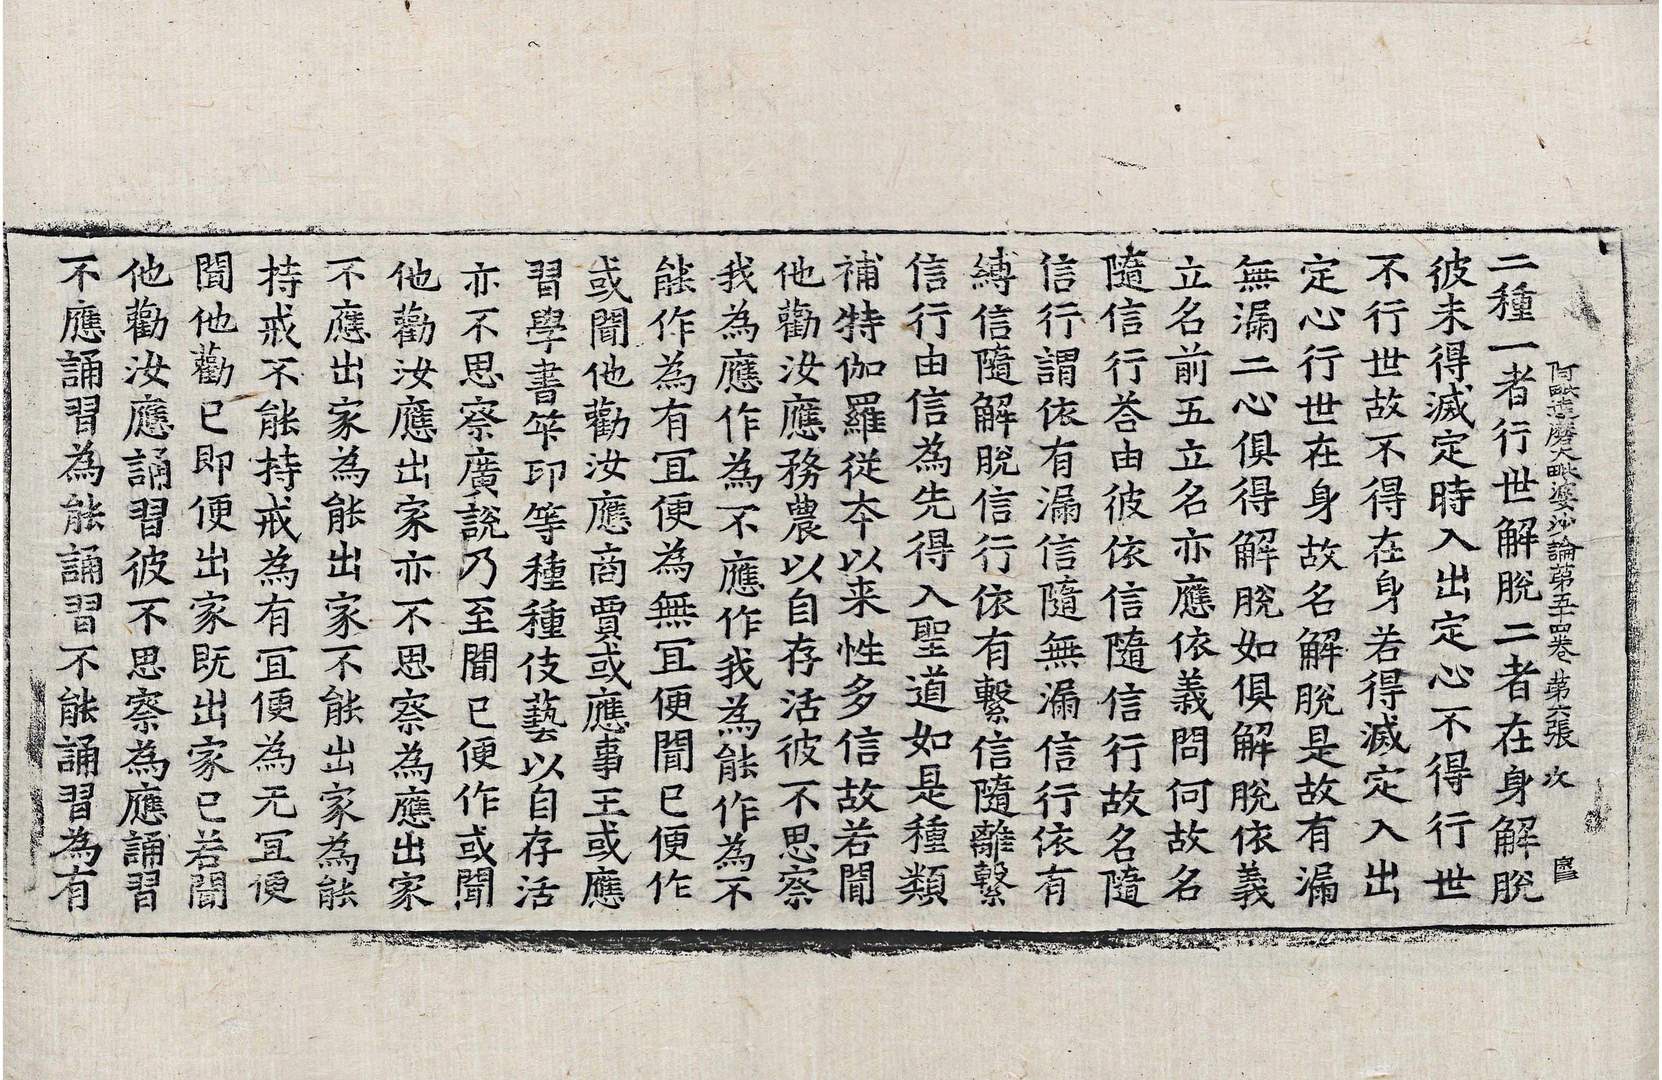 阿毗達磨大毗婆沙論第五十四卷 第六張 次
二種一者行世解脫二者在身解脫
彼未得滅定時入出定心不得行世
不行世故不得在身若得滅定入出
定心行世在身故名解脫是故有漏
無漏二心俱得解脫如俱解脫依義
立名前五立名亦應依義問何故名
隨信行荅由彼依信隨信行故名隨
信行謂依有漏信隨無漏信行依有
縛信隨解脫信行依有繫信隨離繫
信行由信為先得入聖道如是種類
補特伽羅從夲以来性多信故若聞
他勸汝應務農以自存活彼不思察
我為應作為不應作我為能作為不
能作為有冝便為無冝便聞已便作
或聞他勸汝應商賈或應事王或應
習學書筭印等種種伎藝以自存活
亦不思察廣說乃至聞已便作或聞
他勸汝應出家亦不思察為應出家
不應出家為能出家不能出家為能
持戒不能持戒為有冝便為无冝便
聞他勸已即便出家既出家已若聞
他勸汝應誦習彼不思察為應誦習
不應誦習為能誦習不能誦習為有